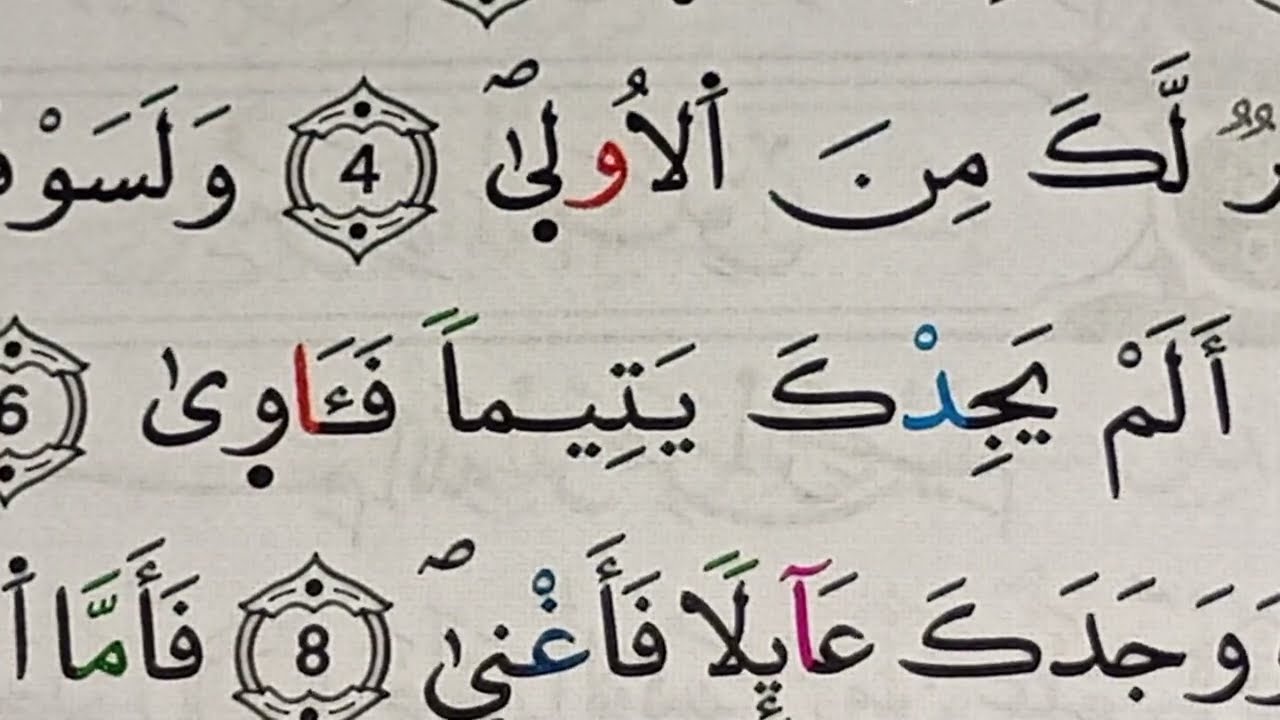 لَّكَ مِنَ اَ۬لُاول۪ىٰۖ 4 وَلَسَوْ
أَلَمْ يَجِدْكَ يَتِيماٗ فَـَٔاو۪ىٰ 6
وَوَجَدَكَ عَآئِلٗا فَأَغْن۪ىٰۖ 8 فَأَمَّا اَ